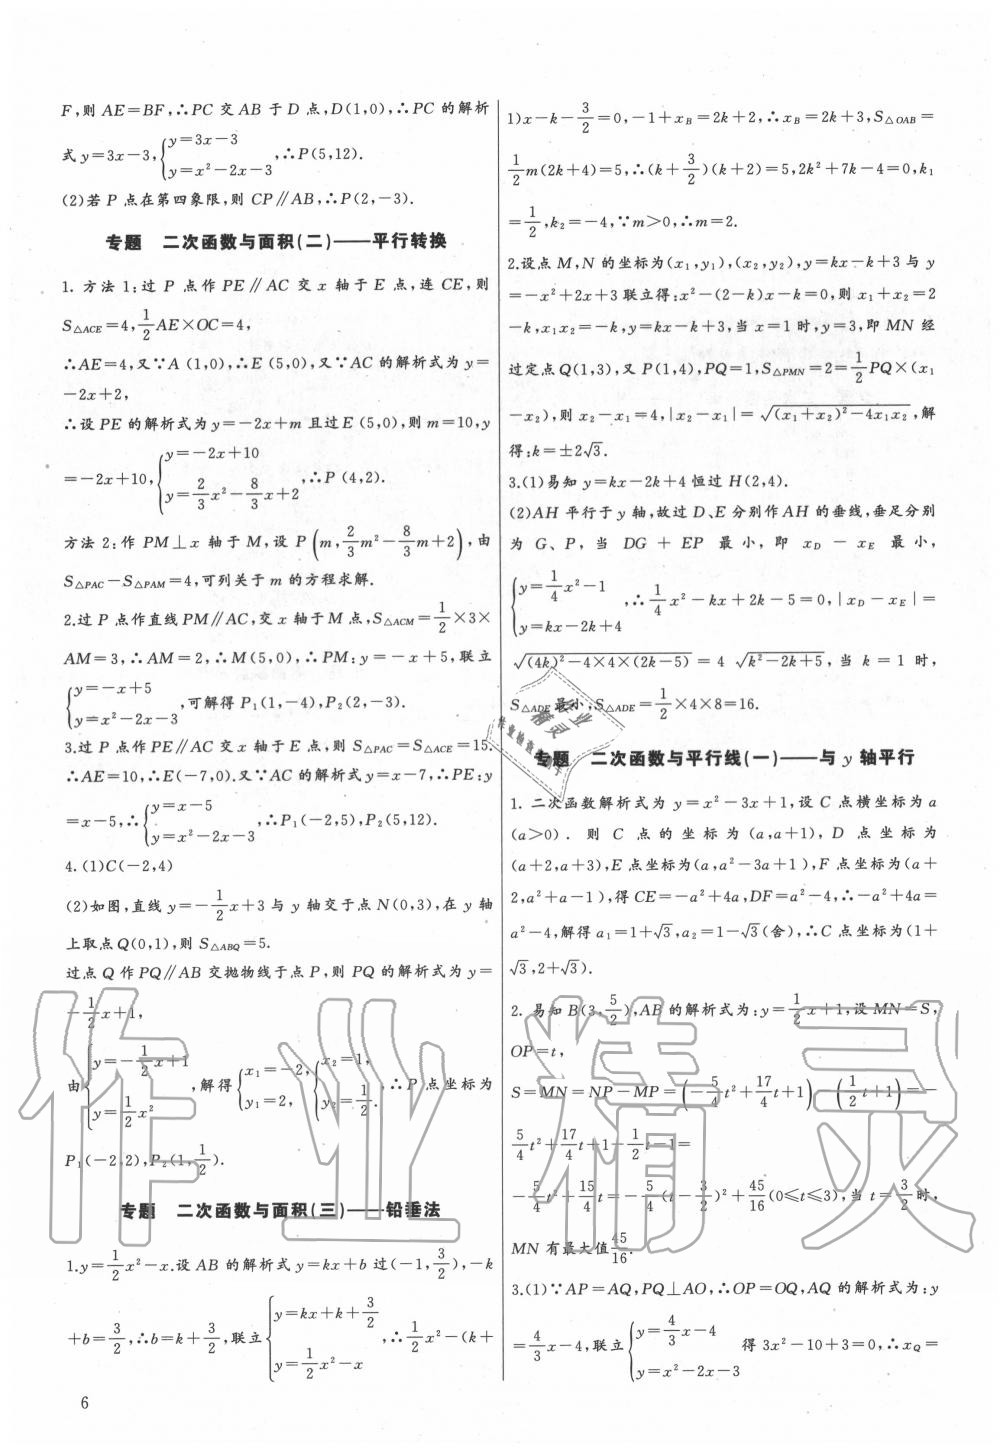 F,则 AE=BF,∴PC 交 AB 于 D 点,D(1,0),∴PC 的解析
式 y=3x-3,{y=3x-3, y=x²-2x-3,∴P(5,12).
(2)若 P 点在第四象限,则 CP∥AB,∴P(2,-3).
专题 二次函数与面积(二)——平行转换
1. 方法 1:过 P 点作 PE∥AC 交 x 轴于 E 点,连 CE,则
S△ACE=4,1/2 AE×OC=4,
∴AE=4,又∵A (1,0),∴E (5,0),又∵AC 的解析式为 y=
-2x+2,
∴设 PE 的解析式为 y=-2x+m 且过 E (5,0),则 m=10,y
=-2x+10,{y=-2x+10, y=2/3x²-8/3x+2,∴P (4,2).
方法 2:作 PM⊥x 轴于 M,设 P(m,2/3m²-8/3m+2),由
S△PAC-S△PAM=4,可列关于 m 的方程求解.
2.过 P 点作直线 PM∥AC,交 x 轴于 M 点,S△ACM=1/2×3×
AM=3,∴AM=2,∴M(5,0),∴PM:y=-x+5,联立
{y=-x+5, y=x²-2x-3,可解得 P₁(1,-4),P₂(2,-3).
3.过 P 点作 PE∥AC 交 x 轴于 E 点,则 S△PAC=S△ACE=15.
∴AE=10,∴E(-7,0).又∵AC 的解析式 y=x-7,∴PE:y
=x-5,∴{y=x-5, y=x²-2x-3,∴P₁(-2,5),P₂(5,12).
4.(1)C(-2,4)
(2)如图,直线 y=-1/2x+3 与 y 轴交于点 N(0,3),在 y 轴
上取点 Q(0,1),则 S△ABQ=5.
过点 Q 作 PQ∥AB 交抛物线于点 P,则 PQ 的解析式为 y=
-1/2x+1,
由{y=-1/2x+1, y=1/2x²,解得{x₁=-2, y₁=2,{x₂=1, y₂=1/2.∴P 点坐标为
P₁(-2,2),P₂(1,1/2).
专题 二次函数与面积(三)——铅垂法
1.y=1/2x²-x.设 AB 的解析式 y=kx+b 过(-1,3/2),-k
+b=3/2,∴b=k+3/2,联立{y=kx+k+3/2, y=1/2x²-x,∴1/2x²-(k+
6
1)x-k-3/2=0,-1+xB=2k+2,∴xB=2k+3,S△OAB=
1/2m(2k+4)=5,∴(k+3/2)(k+2)=5,2k²+7k-4=0,k₁
=1/2,k₂=-4,∵m>0,∴m=2.
2.设点 M,N 的坐标为(x₁,y₁),(x₂,y₂),y=kx-k+3 与 y
=-x²+2x+3 联立得:x²-(2-k)x-k=0,则 x₁+x₂=2
-k,x₁x₂=-k,y=kx-k+3,当 x=1 时,y=3,即 MN 经
过定点 Q(1,3),又 P(1,4),PQ=1,S△PMN=2=1/2PQ×(x₁
-x₂),则 x₂-x₁=4,|x₂-x₁|=√((x₁+x₂)²-4x₁x₂),解
得:k=±2√3.
3.(1)易知 y=kx-2k+4 恒过 H(2,4).
(2)AH 平行于 y 轴,故过 D、E 分别作 AH 的垂线,垂足分别
为 G、P,当 DG + EP 最小,即 xD - xE 最小,
{y=1/4x²-1, y=kx-2k+4,∴1/4x²-kx+2k-5=0,|xD-xE|=
√((4k)²-4×4×(2k-5)) = 4√(k²-2k+5),当 k=1 时,
S△ADE最小,S△ADE=1/2×4×8=16.
专题 二次函数与平行线(一)——与 y 轴平行
1. 二次函数解析式为 y=x²-3x+1,设 C 点横坐标为 a
(a>0). 则 C 点的坐标为(a,a+1),D 点坐标为
(a+2,a+3),E 点坐标为(a,a²-3a+1),F 点坐标为(a+
2,a²+a-1),得 CE=-a²+4a,DF=a²-4,∴-a²+4a=
a²-4,解得 a₁=1+√3,a₂=1-√3(舍),∴C 点坐标(1+
√3,2+√3).
2. 易知 B(3,5/2),AB 的解析式为:y=1/2x+1,设 MN=S,
OP=t,
S=MN=NP-MP=(-5/4t²+17/4t+1)-(1/2t+1)=-
5/4t²+17/4t+1-1/2t-1=
-5/4t²+15/4t=-5/4(t-3/2)²+45/16(0≤t≤3),当 t=3/2时,
MN 有最大值45/16.
3.(1)∵AP=AQ,PQ⊥AO,∴OP=OQ,AQ 的解析式为:y
=4/3x-4,联立{y=4/3x-4, y=x²-2x-3 得 3x²-10+3=0,∴xQ=
作业精灵